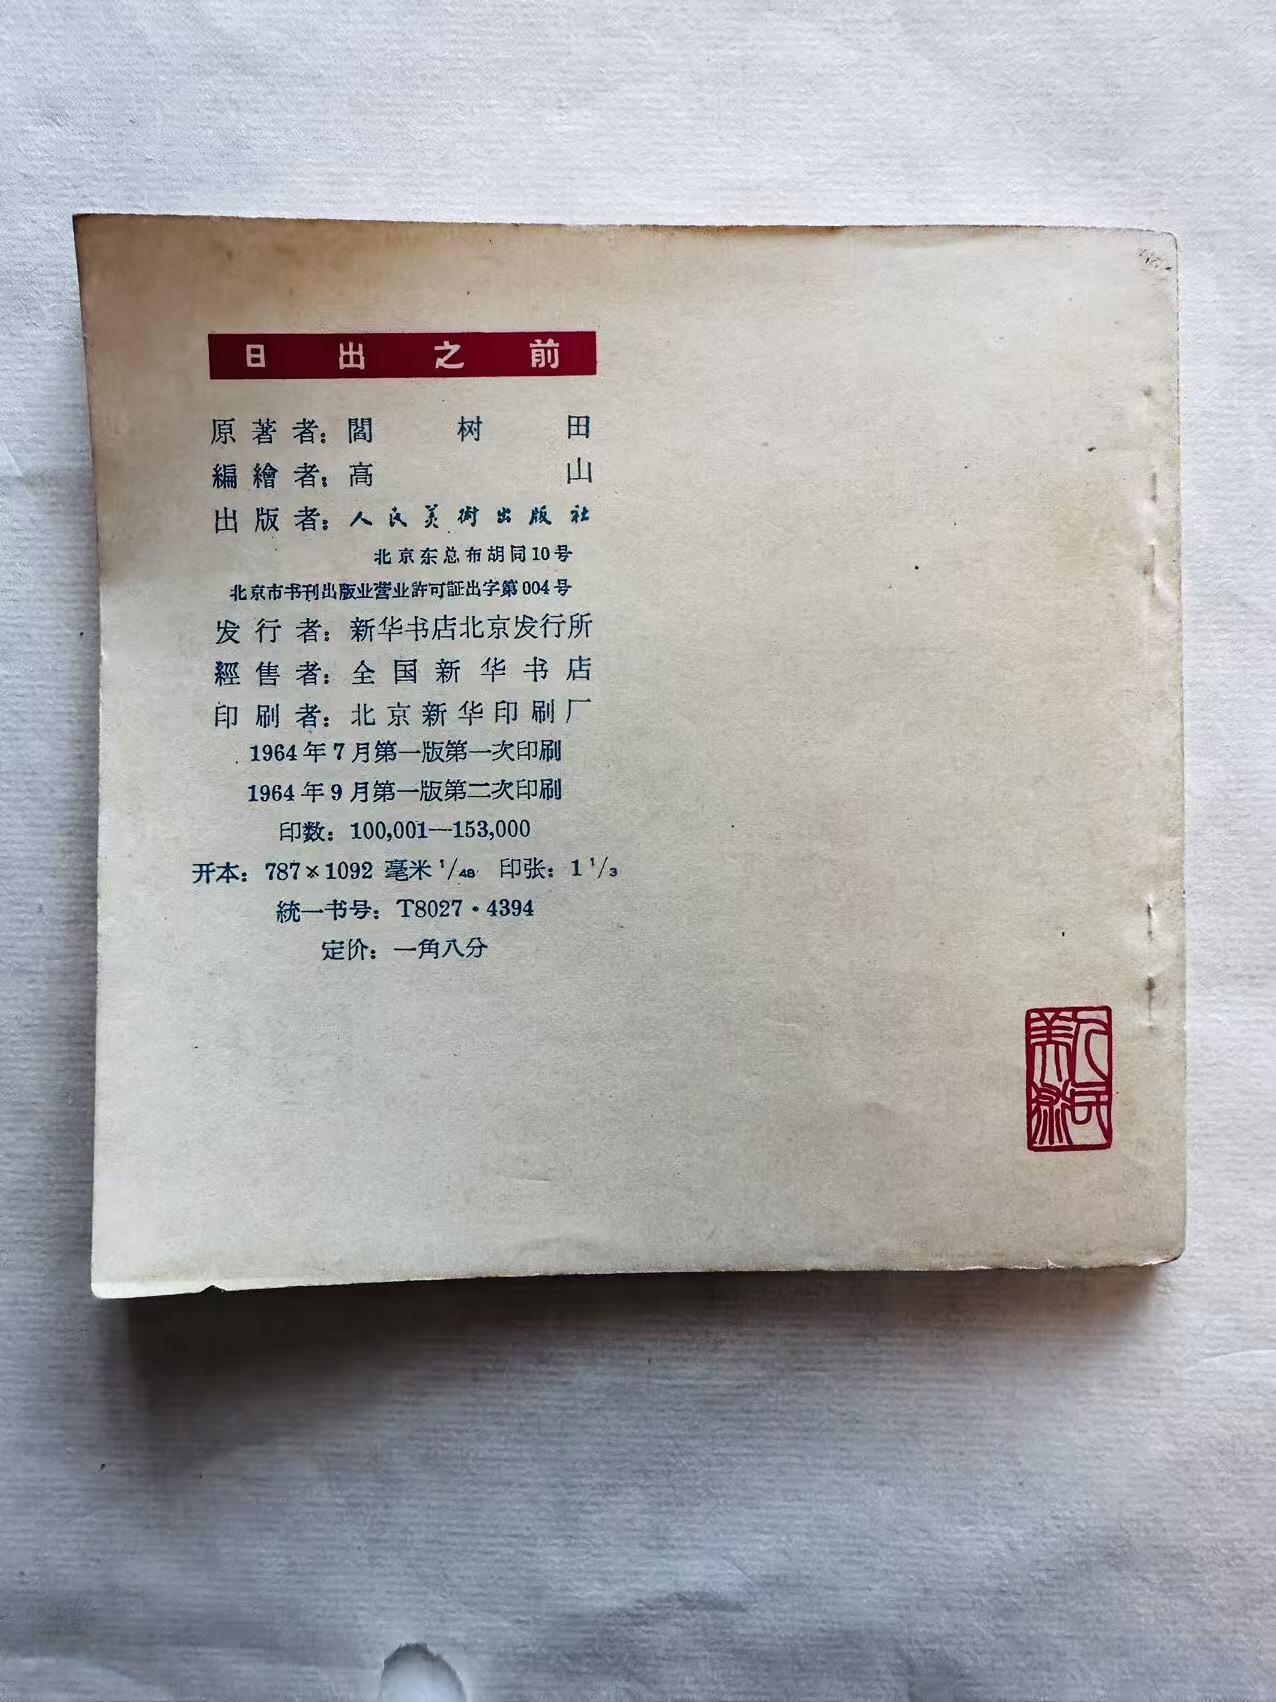 日出之前
原著者：閻树田
編繪者：高山
出版者：人民美術出版社
北京东总布胡同10号
北京市书刊出版业营业許可証出字第004号
发行者：新华书店北京发行所
經售者：全国新华书店
印刷者：北京新华印刷厂
1964年7月第一版第一次印刷
1964年9月第一版第二次印刷
印数：100,001—153,000
开本：787×1092 毫米 1/48 印张：1 1/3
統一书号：T8027·4394
定价：一角八分
人民美術